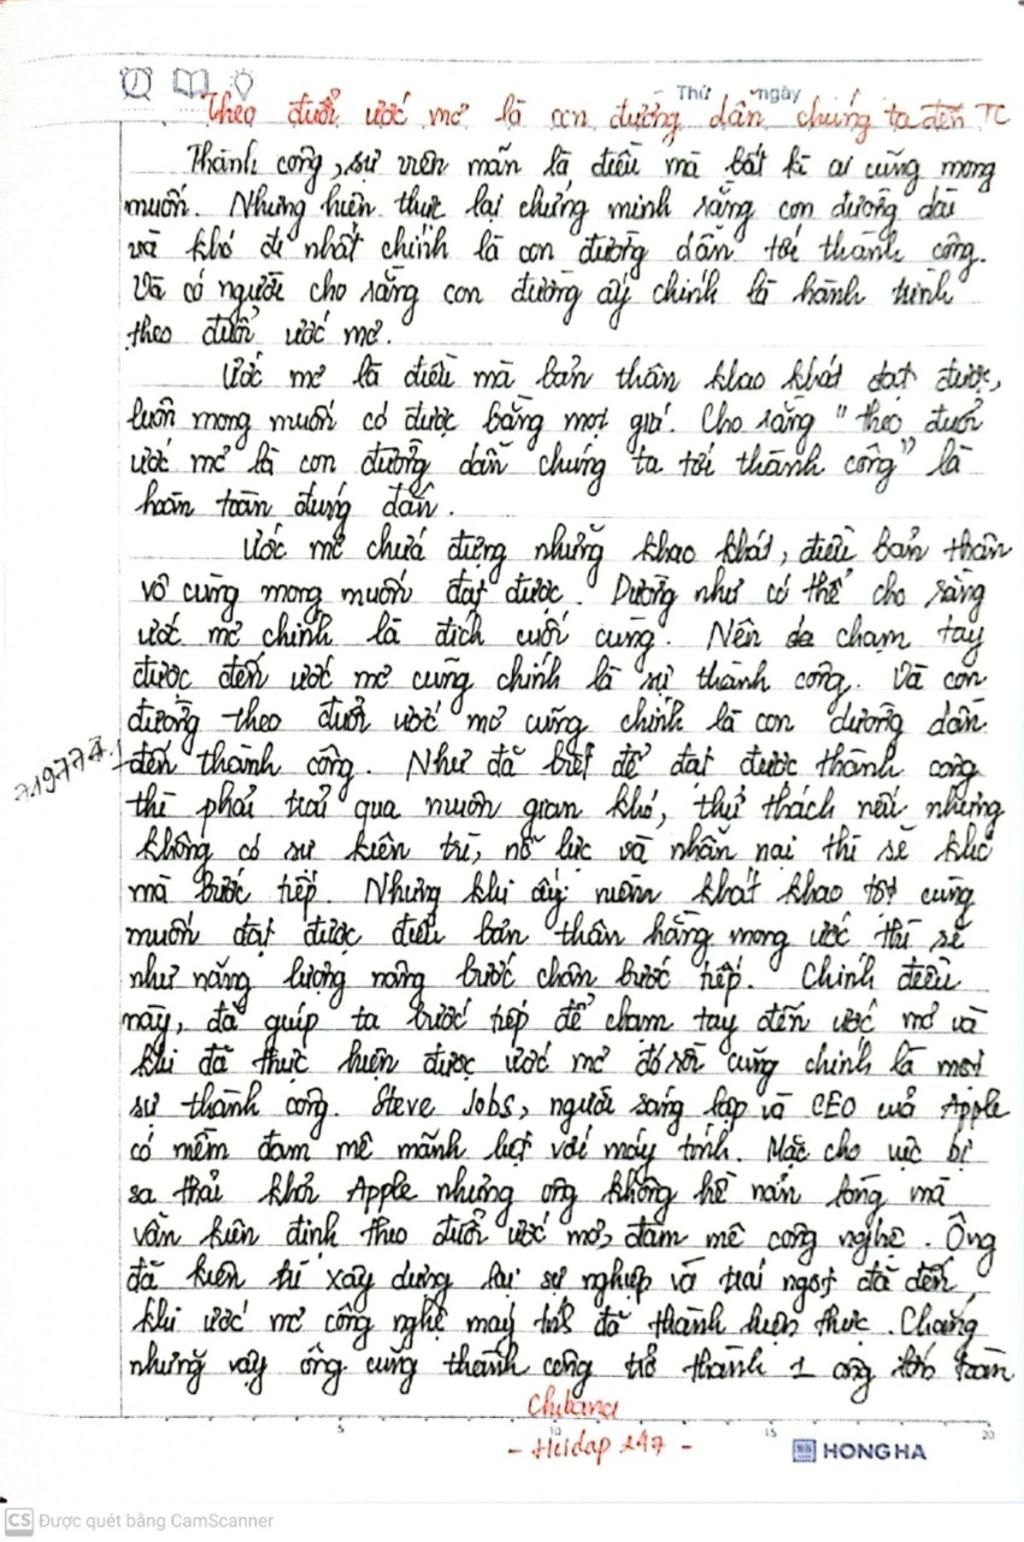 Thứ ngày
Theo đuổi ước mơ là con đường dẫn chúng ta đến TC
Thành công, sự viên mãn là điều mà bất kì ai cũng mong
muốn. Nhưng hiện thực lại chứng minh rằng con đường dài
và khó đi nhất chính là con đường dẫn tới thành công.
Và có người cho rằng con đường ấy chính là hành trình
theo đuổi ước mơ.
Ước mơ là điều mà bản thân khao khát đạt được,
luôn mong muốn có được bằng mọi giá. Cho rằng "theo đuổi
ước mơ là con đường dẫn chúng ta tới thành công" là
hoàn toàn đúng đắn.
Ước mơ chứa đựng những khao khát, điều bản thân
vô cùng mong muốn đạt được. Dường như có thể cho rằng
ước mơ chính là đích cuối cùng. Nên chạm tay
được đến ước mơ cũng chính là sự thành công. Và con
đường theo đuổi ước mơ cũng chính là con đường dẫn
đến thành công. Như đã biết để đạt được thành công
thì phải trải qua muôn gian khó, thử thách nếu nhưng
không có sự kiên trì, nỗ lực và nhẫn nại thì sẽ khó
mà bước tiếp. Nhưng khi ấy niềm khát khao tột cùng
muốn đạt được điều bản thân hằng mong ước thì sẽ
như năng lượng nâng bước chân bước tiếp. Chính điều
này, đã giúp ta bước tiếp để chạm tay đến ước mơ và
khi đã thực hiện được ước mơ đó rồi cũng chính là một
sự thành công. Steve Jobs, người sáng lập và CEO của Apple
có mềm đam mê mãnh liệt với máy tính. Mặc cho việc bị
sa thải khỏi Apple nhưng ông không hề nản lòng mà
vẫn kiên định theo đuổi ước mơ, đam mê công nghệ. Ông
đã kiên trì xây dựng lại sự nghiệp và trái ngọt đã đến
khi ước mơ công nghệ máy tính đã thành hiện thực. Chẳng
những vậy ông cũng thành công trở thành 1 ông lớn toàn
Chibana
- Heidap 247 -
5 10 15 20
HONG HA
CS Được quét bằng CamScanner